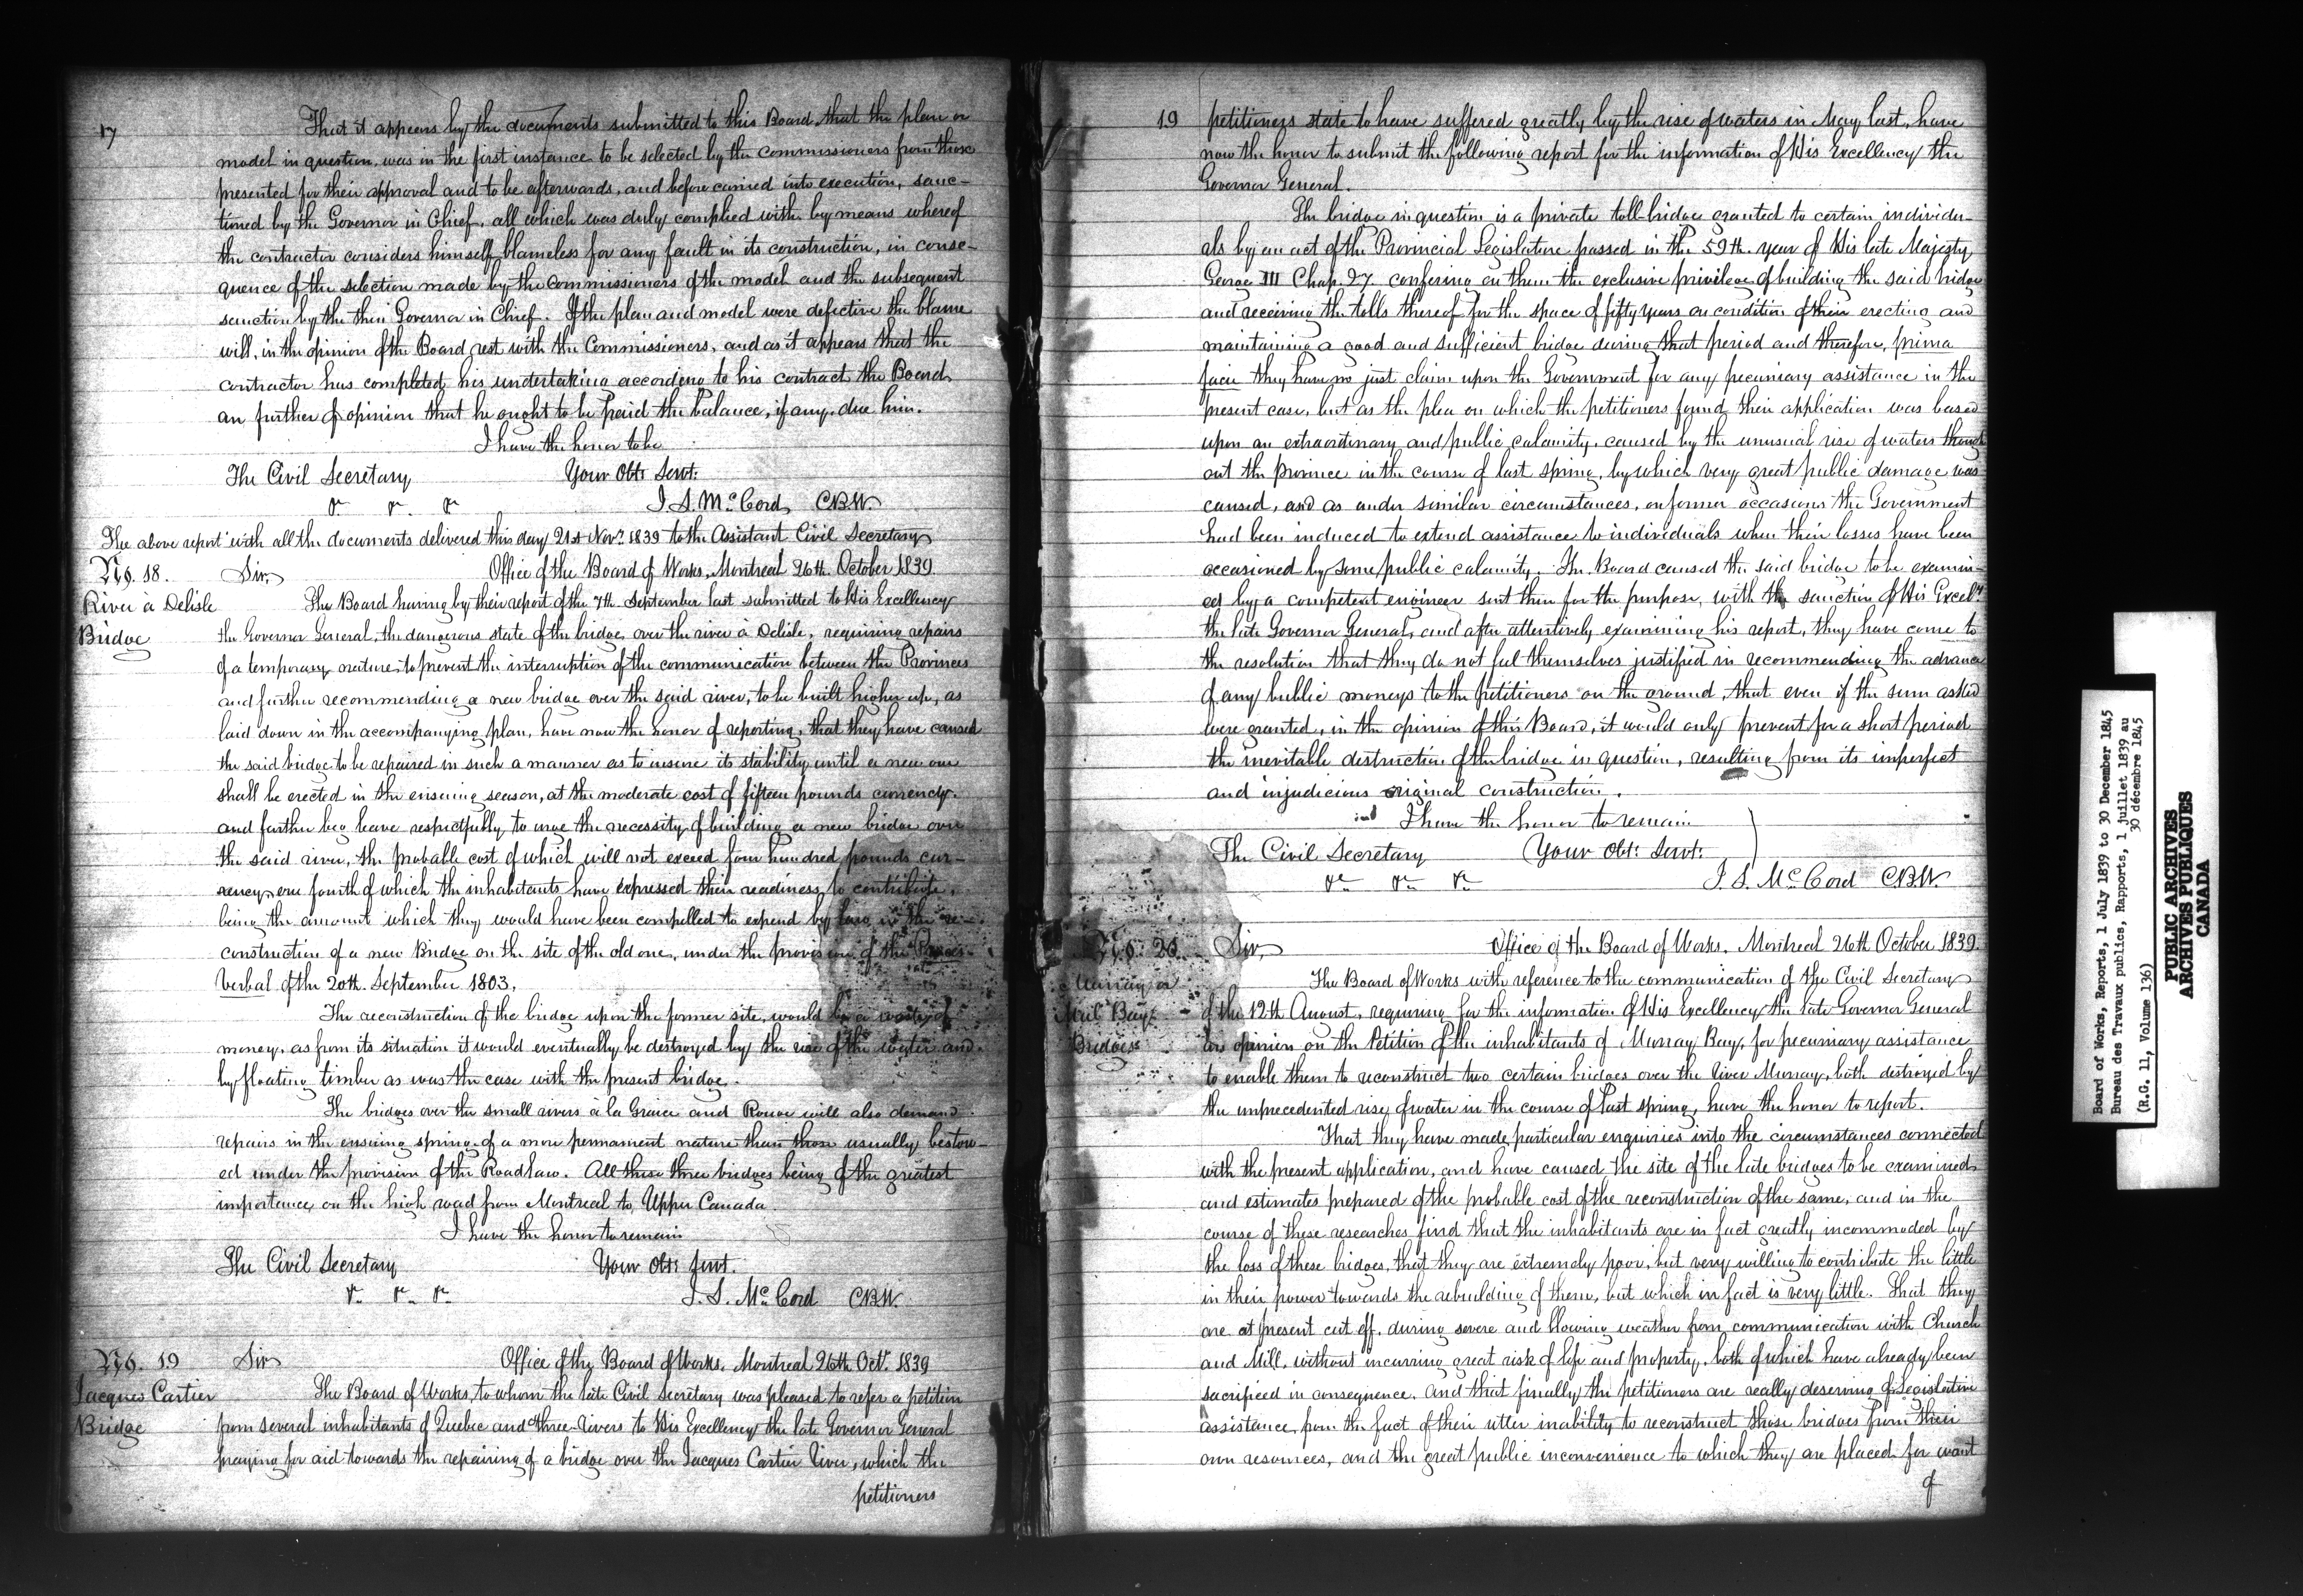 17
That it appears by the documents submitted to this Board that the plan or
model in question, was in the first instance to be selected by the commissioners from those
presented for their approval and to be afterwards, and before carried into execution, sanc-
tioned by the Governor in Chief, all which was duly complied with by means whereof
the contractor considers himself blameless for any fault in its construction, in conse-
quence of the selection made by the Commissioners of the model and the subsequent
sanction by the then Governor in Chief. If the plan and model were defective the blame
will, in the opinion of the Board rest with the Commissioners, and as it appears that the
contractor has completed his undertaking according to his contract the Board
are further of opinion that he ought to be paid the balance, if any, due him.
I have the honor to be
The Civil Secretary Your Obt: Servt:
&c &c &c J. S. McCord CBW.
The above report with all the documents delivered this day 21st Novr. 1839 to the Asistant Civil Secretary
No. 18. Sir, Office of the Board of Works, Montreal 26th. October 1839.
River à Delisle
Bridge
The Board having by their report of the 7th September last submitted to His Excellency
the Governor General, the dangerous state of the bridge, over the river à Delisle, requiring repairs
of a temporary nature, to prevent the interruption of the communication between the Provinces
and further recommending a new bridge over the said river, to be built higher up, as
laid down in the accompanying plan, have now the honor of reporting, that they have caused
the said bridge to be repaired in such a manner as to insure its stability until a new one
shall be erected in the ensuing season, at the moderate cost of fifteen pounds currency.
and further beg leave respectfully to urge the necessity of building a new bridge over
the said river, the probable cost of which will not exceed four hundred pounds cur-
rency, one fourth of which the inhabitants have expressed their readiness to contribute,
being the amount which they would have been compelled to expend by law in the re-
construction of a new Bridge on the site of the old one, under the provision of the Proces-
Verbal of the 20th. September 1803.
The reconstruction of the bridge upon the former site, would be a waste of
money, as from its situation it would eventually be destroyed by the rise of the water and
by floating timber as was the case with the present bridge.
The bridges over the small rivers à la Graice and Rouge will also demand
repairs in the ensuing spring of a more permanent nature than those usually bestow-
ed under the provision of the Road law. All these three bridges being of the greatest
importance, on the high road from Montreal to Upper Canada.
I have the honor to remain
The Civil Secretary Your Obt: Servt.
&c &c &c J. S. McCord CBW.
No. 19 Sir Office of the Board of Works, Montreal 26th Oct. 1839
Jacques Cartier
Bridge
The Board of Works, to whom the late Civil Secretary was pleased to refer a petition
from several inhabitants of Quebec and three-Rivers to His Excellency the late Governor General
praying for aid towards the repairing of a bridge over the Jacques Cartier River, which the
petitioners
19
petitioners state to have suffered greatly by the rise of waters in May last, have
now the honor to submit the following report for the information of His Excellency the
Governor General.
The bridge in question is a private toll bridge granted to certain individu-
als by an act of the Provincial Legislature passed in the 59th year of His late Majesty
George III Chap. 27. confering on them the exclusive privilege of building the said bridge
and receiving the tolls thereof for the space of fifty years on condition of their erecting and
maintaining a good and sufficient bridge during that period and therefore, prima
facie they have no just claim upon the Government for any pecuniary assistance in the
present case, but as the plea on which the petitioners found their application was based
upon an extraordinary and public calamity, caused by the unusual rise of waters through
out the province in the course of last spring, by which very great public damage was
caused, and as under similar circumstances, on former occasions the Government
had been induced to extend assistance to individuals when their losses have been
occasioned by some public calamity. The Board caused the said bridge to be examin-
ed by a competent engineer sent then for the purpose, with the sanction of His Excely
the late Governor General, and after attentively examining his report, they have come to
the resolution that they do not feel themselves justified in recommending the advance
of any public moneys to the petitioners on the ground, that even if the sum asked
were granted, in the opinion of this Board, it would only prevent for a short period
the inevitable destruction of the bridge in question, resulting from its imperfect
and injudicious original construction.
I have the honor to remain
The Civil Secretary Your Obt: Servt:
&c &c &c J. S. McCord CBW.
No. 20. Sir, Office of the Board of Works, Montreal 26th October 1839.
Murray or
Mal Bay
Bridges
The Board of Works with reference to the communication of the Civil Secretary
of the 12th August, requiring for the information of His Excellency the late Governor General
an opinion on the Petition of the inhabitants of Murray Bay, for pecuniary assistance
to enable them to reconstruct two certain bridges over the River Murray, both destroyed by
the unprecedented rise of water in the course of last spring, have the honor to report.
That they have made particular enquiries into the circumstances connected
with the present application, and have caused the site of the late bridges to be examined
and estimates prepared of the probable cost of the reconstruction of the same, and in the
course of these researches find that the inhabitants are in fact greatly incommoded by
the loss of these bridges, that they are extremely poor, but very willing to contribute the little
in their power towards the rebuilding of them, but which in fact is very little. That they
are at present cut off, during severe and blowing weather from communication with Church
and Mill, without incurring great risk of life and property, both of which have already been
sacrificed in consequence, and that finally the petitioners are really deserving of Legislative
assistance, from the fact of their utter inability to reconstruct those bridges from their
own resources, and the great public inconvenience to which they are placed for want
of
Board of Works, Reports, 1 July 1839 to 30 December 1845
Bureau des Travaux publics, Rapports, 1 juillet 1839 au
30 décembre 1845
(R.G. 11, Volume 136)
PUBLIC ARCHIVES
ARCHIVES PUBLIQUES
CANADA